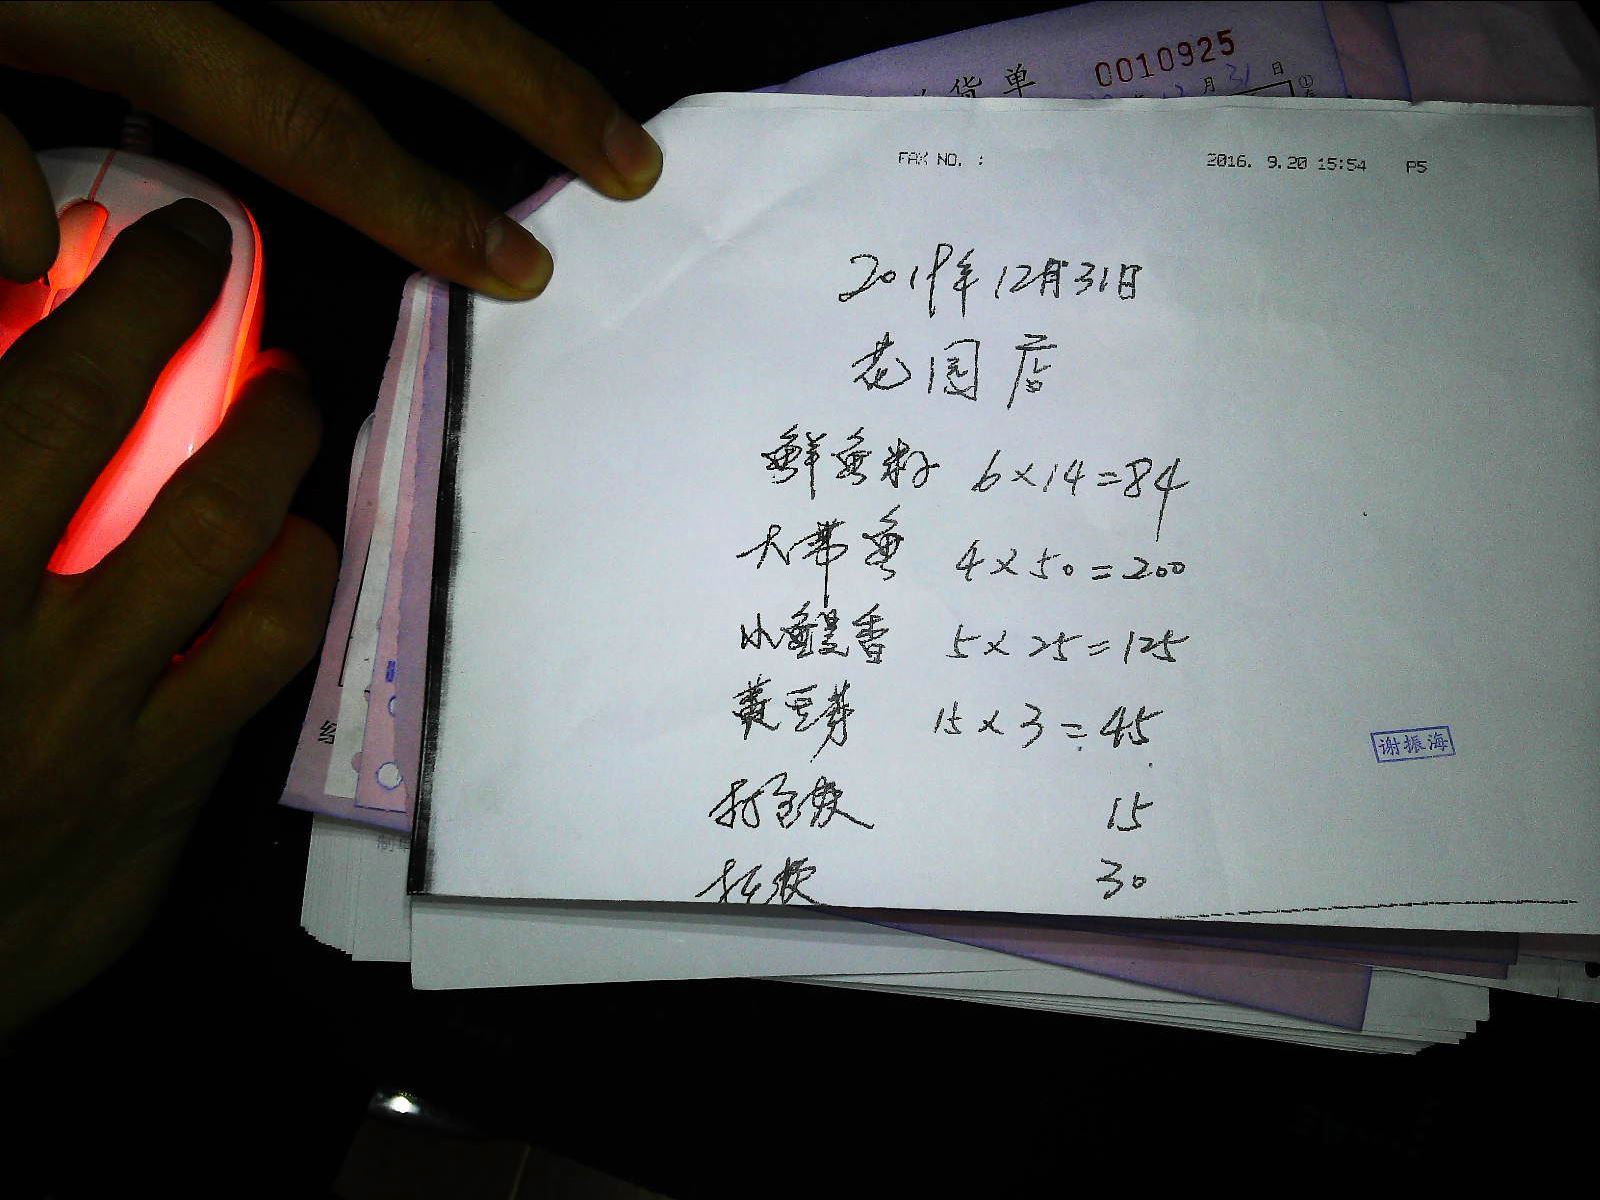 货单 0010925
月31日
FAX NO. : 2016. 9.20 15:54 P5
2019年12月31日
花园店
鲜鱼籽 6×14=84
大带鱼 4×50=200
小鳇香 5×25=125
黄豆芽 15×3=45
谢振海
打包费 15
30